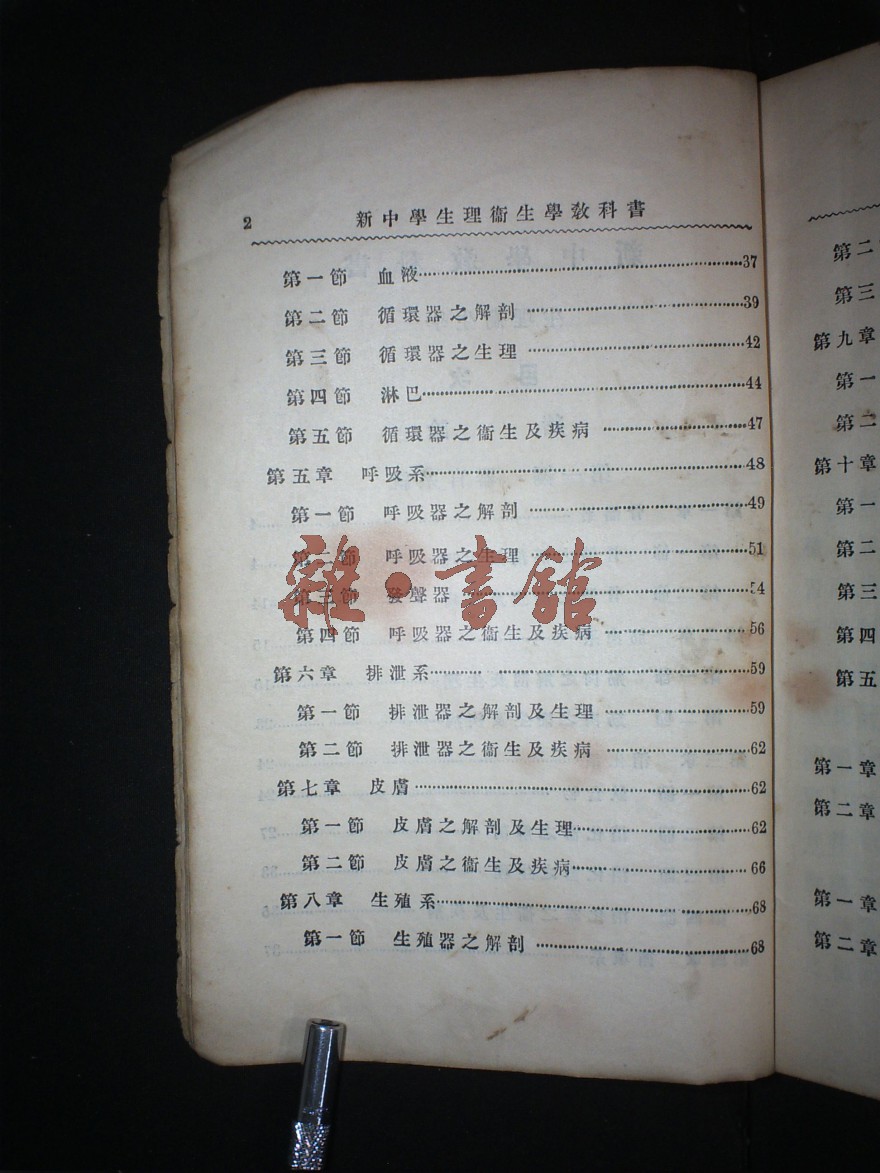 2 新中學生理衞生學敎科書
第一節 血液 37
第二節 循環器之解剖 39
第三節 循環器之生理 42
第四節 淋巴 44
第五節 循環器之衞生及疾病 47
第五章 呼吸系 48
第一節 呼吸器之解剖 49
第二節 呼吸器之生理 51
第三節 發聲器 54
第四節 呼吸器之衞生及疾病 56
第六章 排泄系 59
第一節 排泄器之解剖及生理 59
第二節 排泄器之衞生及疾病 62
第七章 皮膚 62
第一節 皮膚之解剖及生理 62
第二節 皮膚之衞生及疾病 66
第八章 生殖系 68
第一節 生殖器之解剖 68
雜·書館
第二
第三
第九章
第一
第二
第十章
第一
第二
第三
第四
第五
第一章
第二章
第一章
第二章